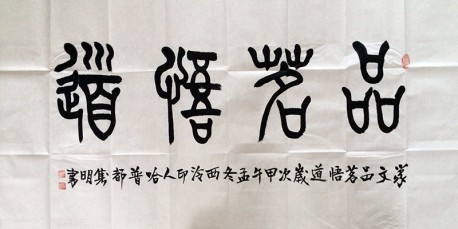 品茗悟道
篆文品茗悟道歲次甲午孟冬西泠印人哈普都隽明書